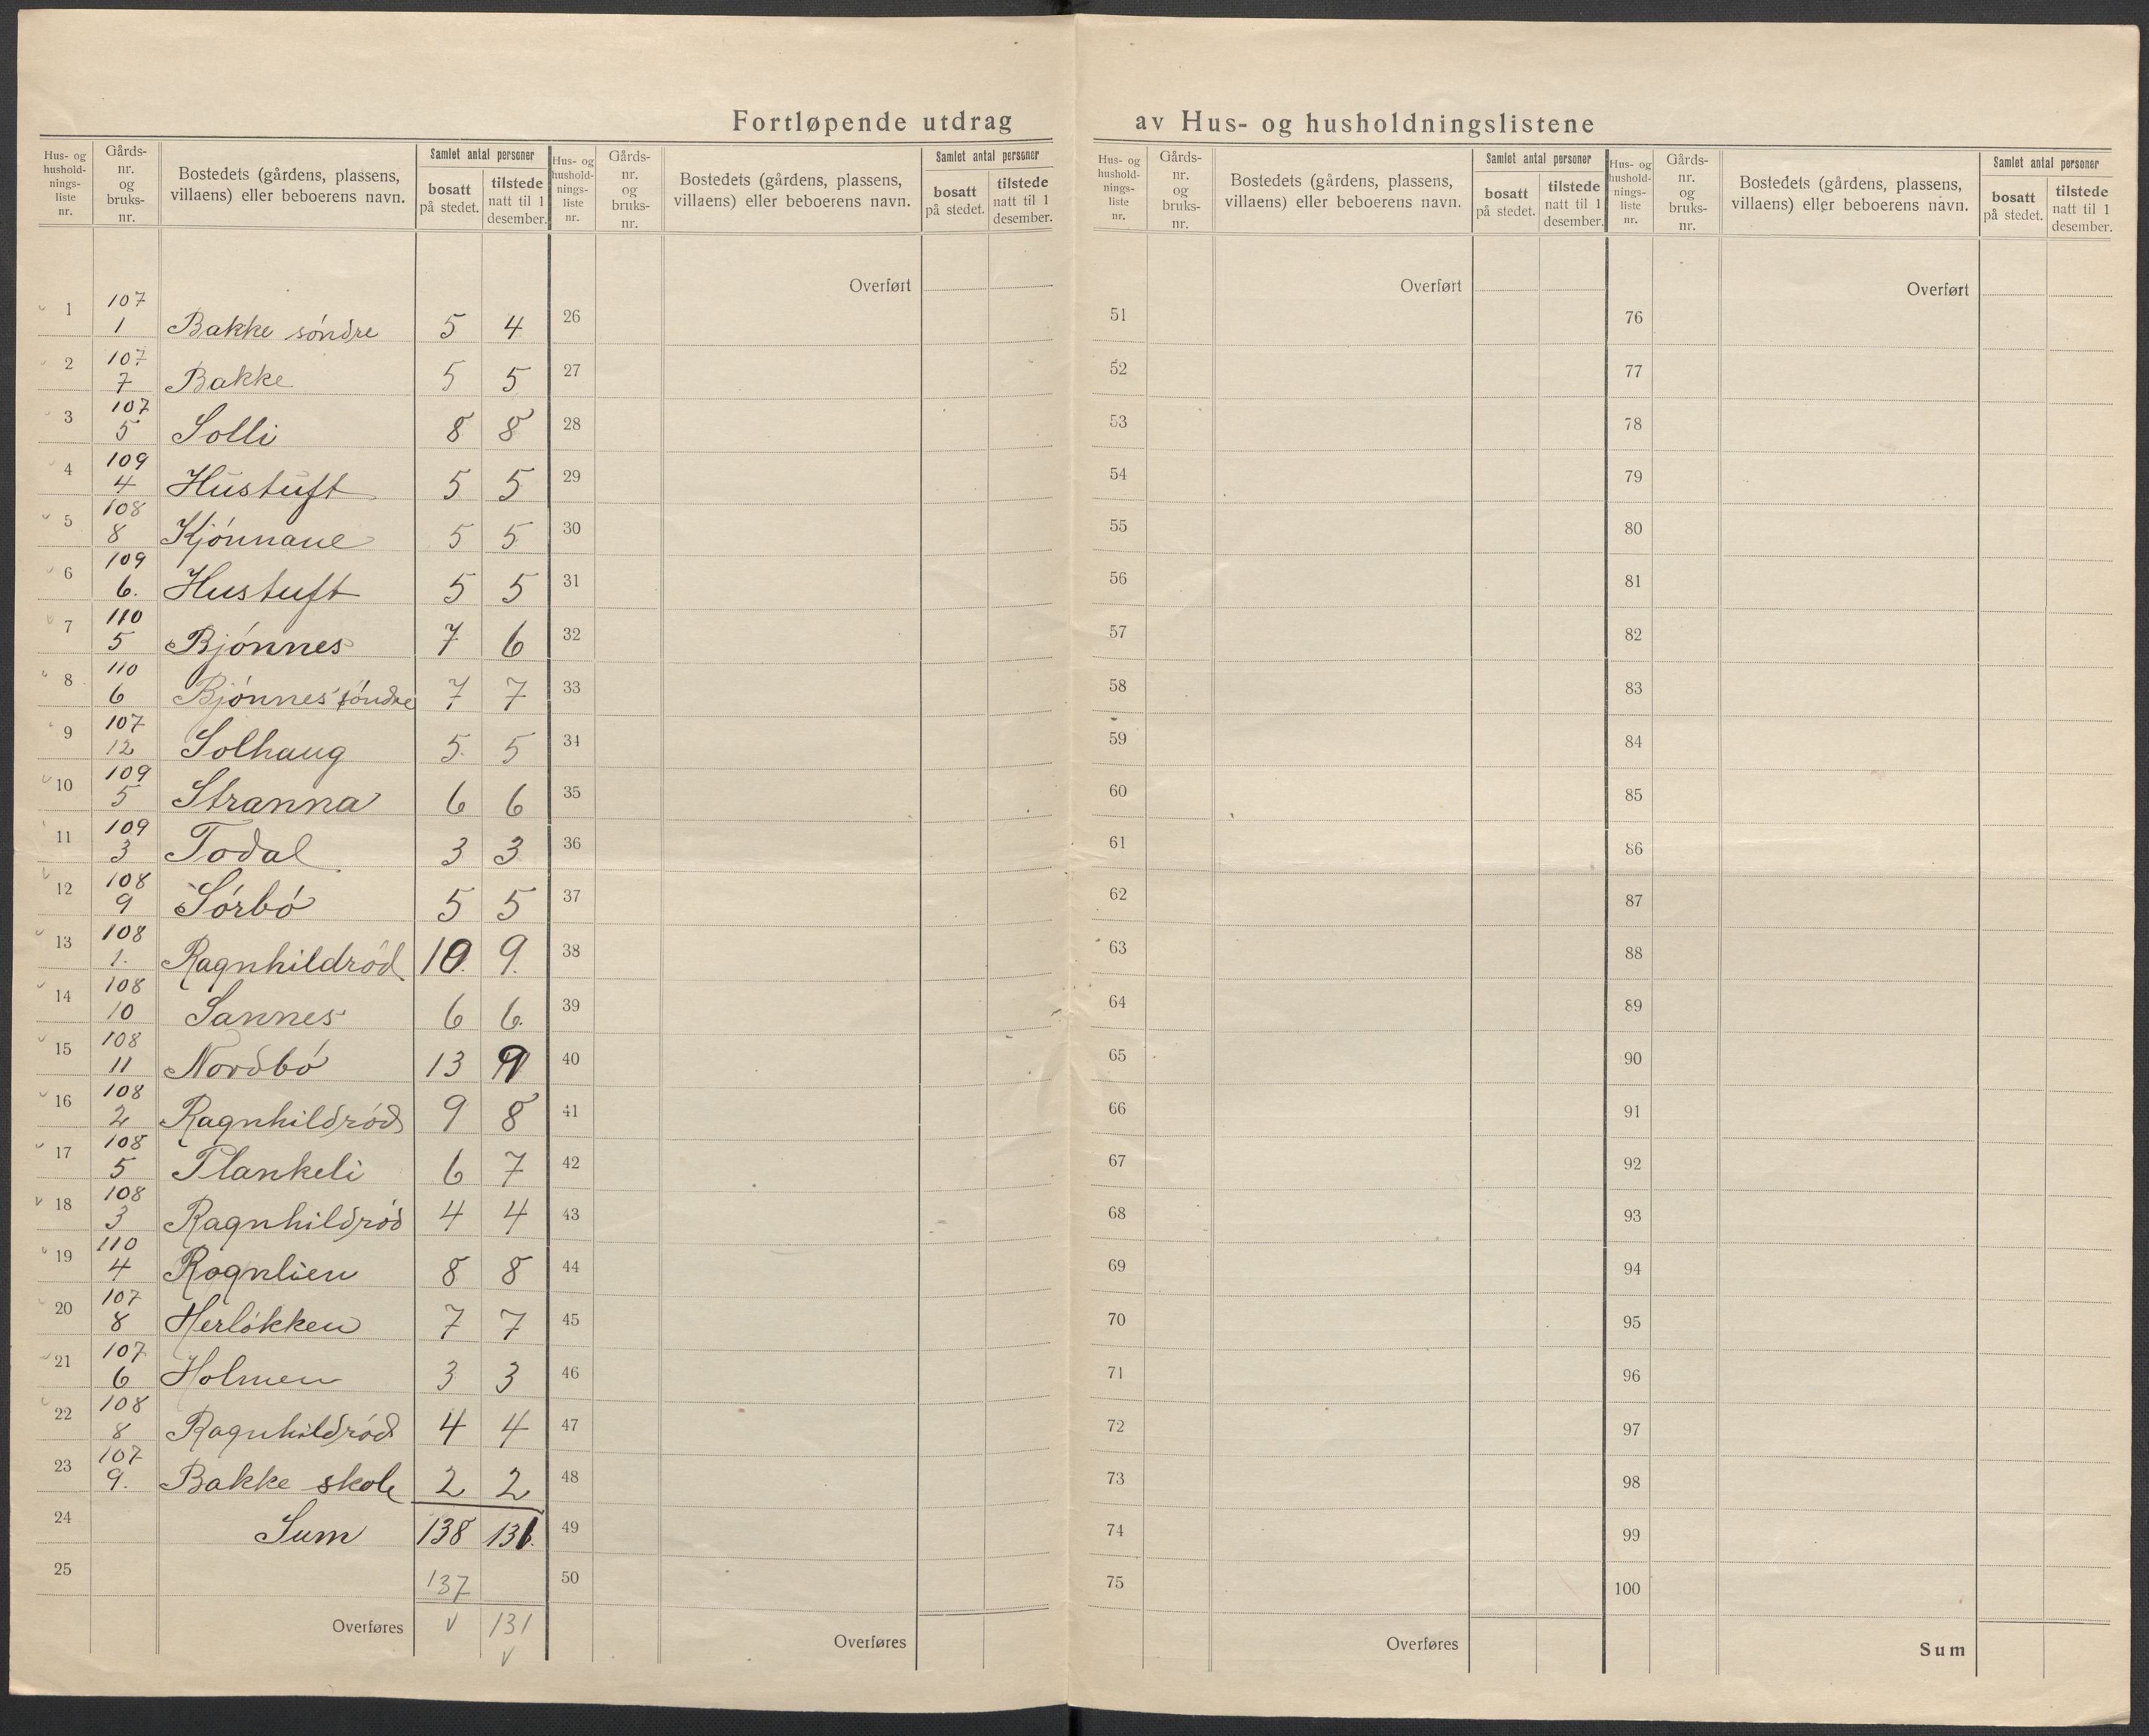 Fortløpende utdrag av Hus- og husholdningslistene
Hus- og hushold-nings-liste nr. | Gårds-nr. og bruks-nr. | Bostedets (gårdens, plassens, villaens) eller beboerens navn. | Samlet antal personer | bosatt på stedet. | tilstede natt til 1 desember.
Hus- og hushold-nings-liste nr. | Gårds-nr. og bruks-nr. | Bostedets (gårdens, plassens, villaens) eller beboerens navn. | Samlet antal personer | bosatt på stedet. | tilstede natt til 1 desember.
Hus- og hushold-nings-liste nr. | Gårds-nr. og bruks-nr. | Bostedets (gårdens, plassens, villaens) eller beboerens navn. | Samlet antal personer | bosatt på stedet. | tilstede natt til 1 desember.
Hus- og hushold-nings-liste nr. | Gårds-nr. og bruks-nr. | Bostedets (gårdens, plassens, villaens) eller beboerens navn. | Samlet antal personer | bosatt på stedet. | tilstede natt til 1 desember.
Overført Overført Overført
1 107 1 Bakke söndre 5 4 26 51 76
2 107 7 Bakke 5 5 27 52 77
3 107 5 Solli 8 8 28 53 78
4 109 4 Hustuft 5 5 29 54 79
5 108 8 Kjónnane 5 5 30 55 80
6 109 6. Hustuft 5 5 31 56 81
7 110 5 Bjónnes 7 6 32 57 82
8 110 6 Bjónnes söndre 7 7 33 58 83
9 107 12 Solhaug 5. 5 34 59 84
10 109 5 Stranna 6 6 35 60 85
11 109 3 Todal 3 3 36 61 86
12 108 9 Sórbó 5 5 37 62 87
13 108 1. Ragnhildród 10. 9. 38 63 88
14 108 10 Sannes 6 6. 39 64 89
15 108 11 Nordbó 13 9 40 65 90
16 108 2 Ragnhildród 9 8 41 66 91
17 108 5 Plankeli 6 7 42 67 92
18 108 3 Ragnhildród 4 4 43 68 93
19 110 4 Rognlien 8 8 44 69 94
20 107 8 Herlökken 7 7 45 70 95
21 107 6 Holmen 3 3 46 71 96
22 108 8 Ragnhildród 4 4 47 72 97
23 107 9. Bakke skole 2 2 48 73 98
24 Sum 138 131. 49 74 99
25 137 50 75 100
Overføres 131 Overføres Overføres Sum